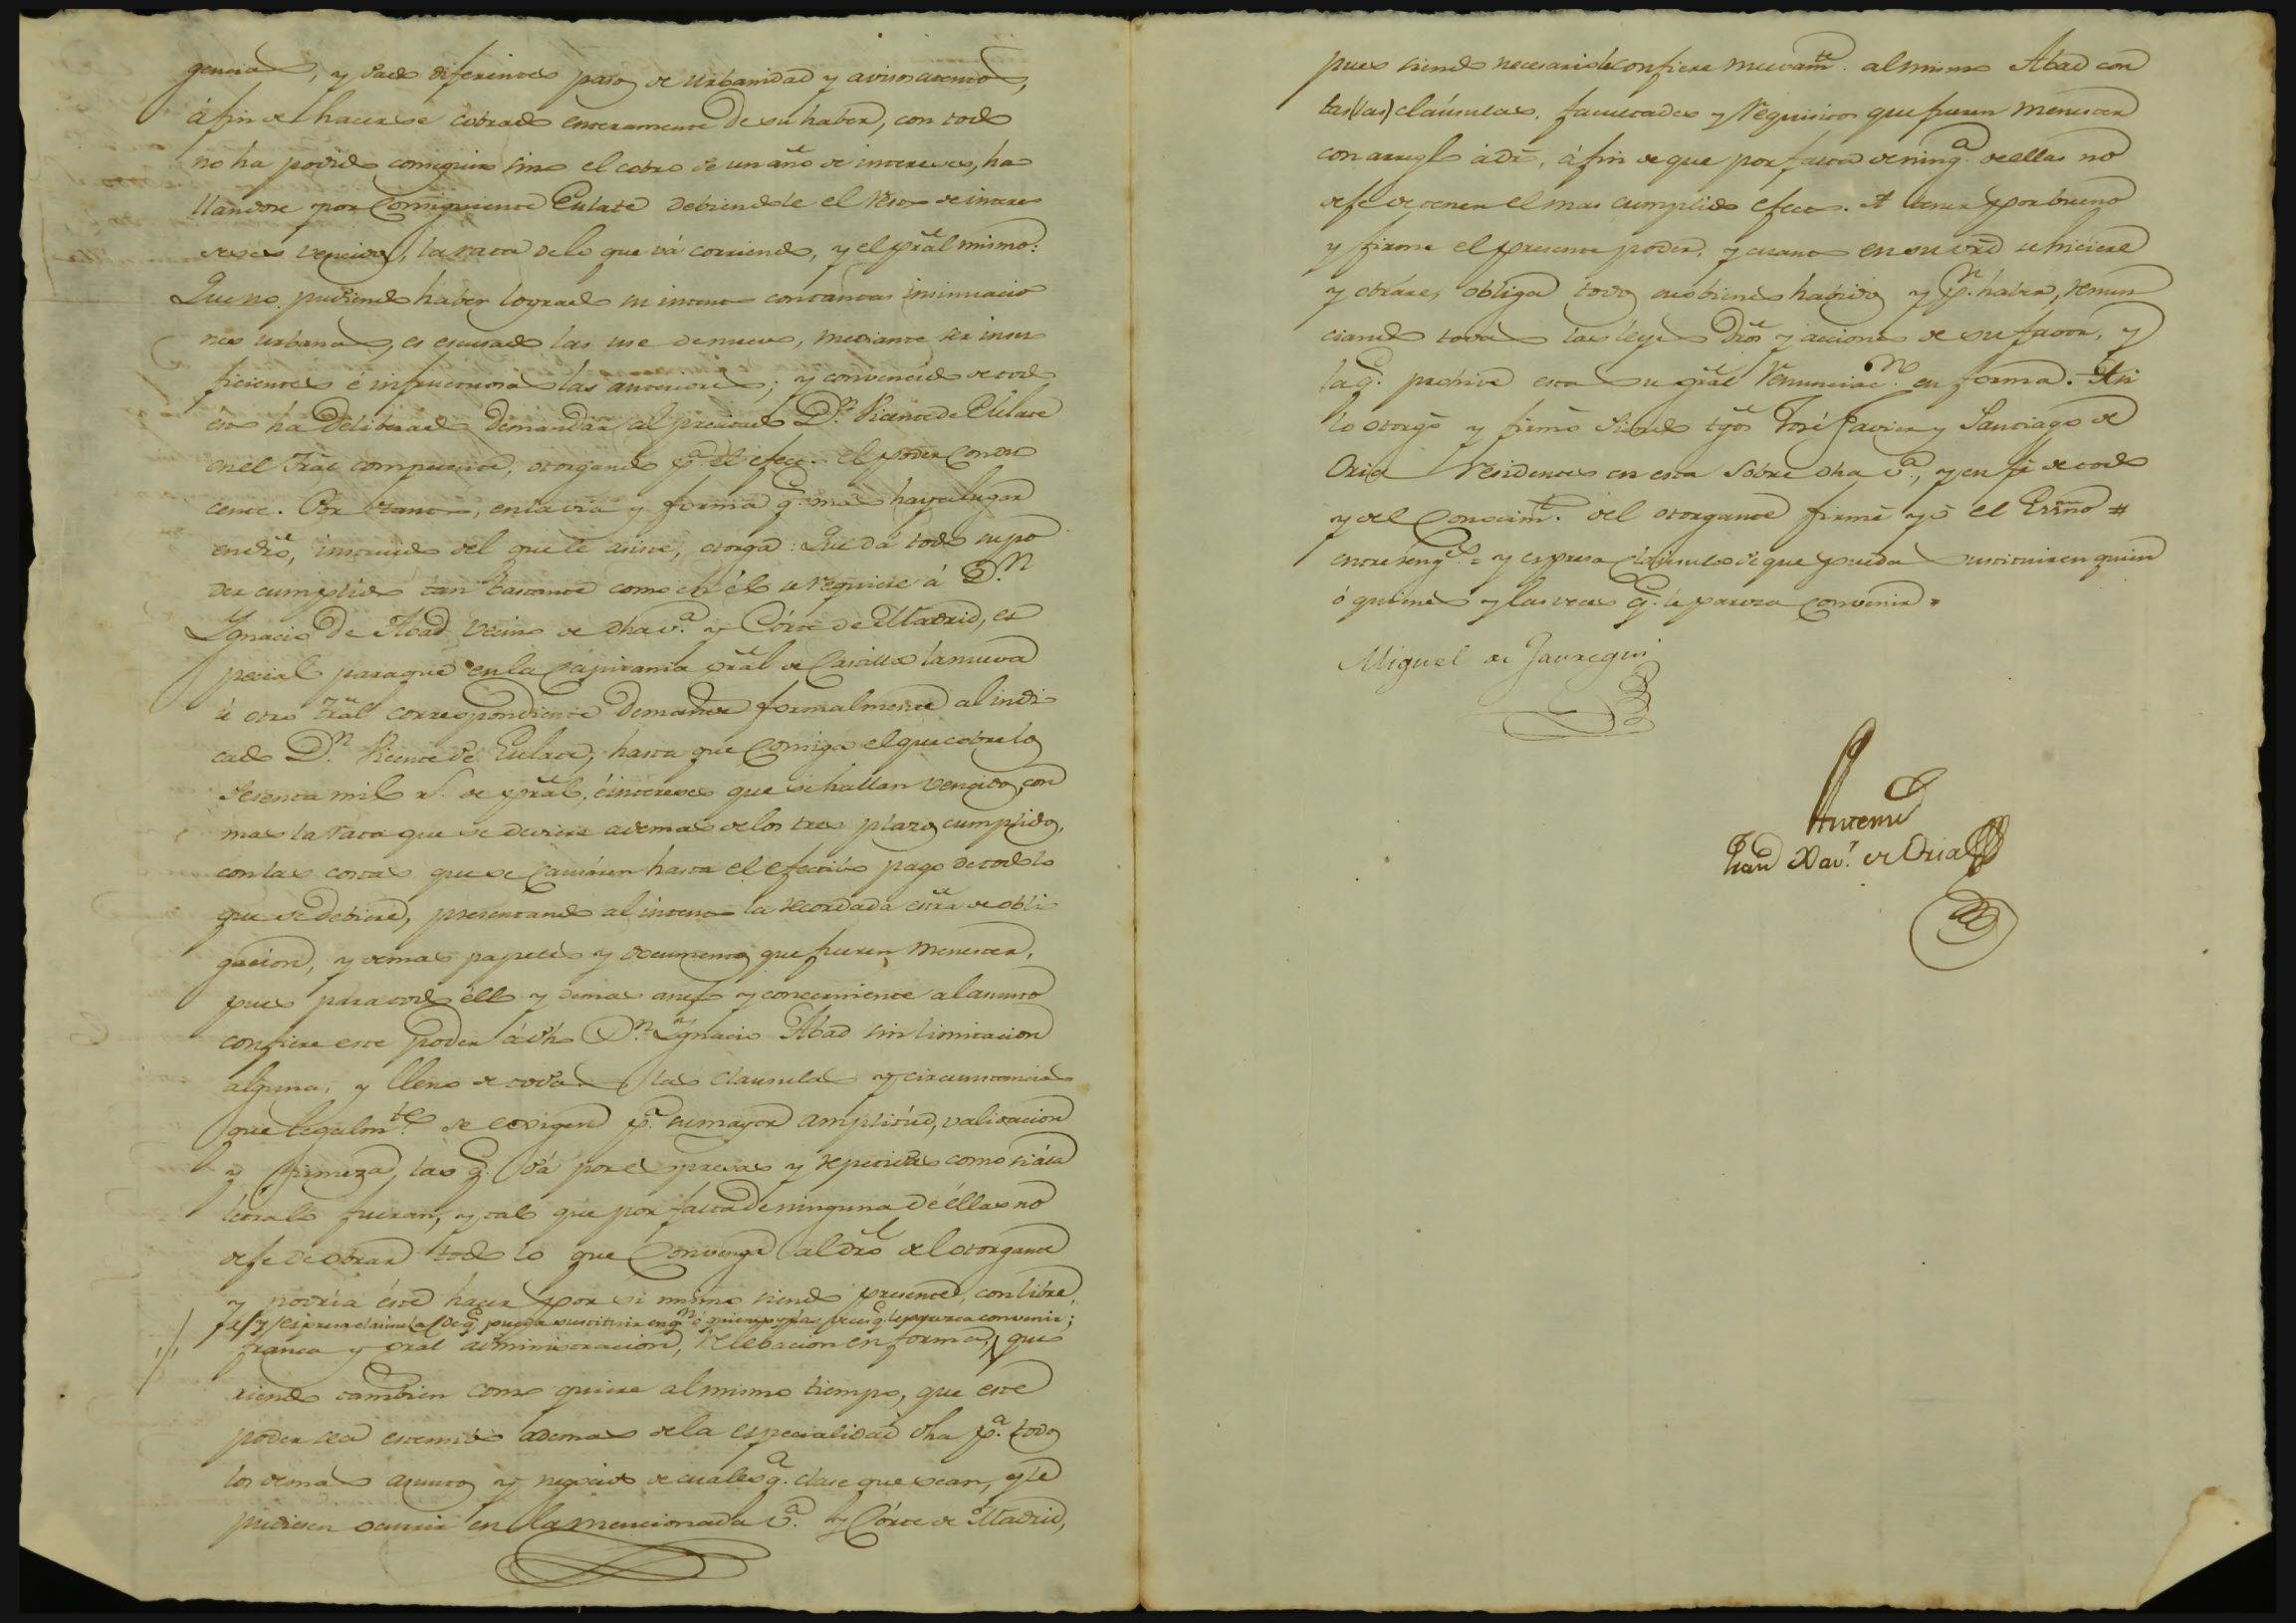 gencias, y dado diferentes pasos de urbanidad y avisos atentos,
á fin de hacerse cobrado enteramente de su haber, con todo
no ha podido conseguir sino el cobro de un año de intereses, ha
llandose por consiguiente Eulate debiendole el resto de intere
reses vencidos, la rata de lo que vá corriendo, y el pral mismo:
Que no pudiendo haber logrado su intento con tantas insinuacio
nes urbanas, es escusado las use de nuevo, mediante ser insu
ficientes é infructuosas las anteriores; y convencido de todo
ésto ha deliberado demandar al precitado Dn. Vicente de Eulate
en el Tral competente, otorgando pa. el efecto el poder condu
cente. Por tanto, en la via y forma q. mas haya lugar
en dro, instruido del que le asiste, otorga: Que dá todo su po
der cumplido tan bastante como en él se requiere á Dn.
Ygnacio de Abad vecino de dha va. y Córte de Madrid, es
pecial para que en la Capitania gral de Castilla la nueva
ú otro Tral correspondiente demande formalmente al indi
cado Dn. Vicente de Eulate, hasta que consiga el que cobre los
sesenta mil rs. de pral, é intereses que se hallan vencidos, con
mas la rata que se deviere ademas de los tres plazos cumplidos,
con las costas que se causáren hasta el efectivo pago de todo lo
que se debiere, presentando al intento la recordada esra de obli
gacion, y demas papeles y documentos que fueren menester,
pues para todo éllo y demas anejo y concerniente al asunto
confiere este poder á dho Dn. Ygnacio Abad sin limitacion
alguna, y lleno de todas las clausulas y circunstancias
que legalmte. se exigen pa. su mayor amplitúd, validacion
y firmeza, las q. dá por espresas y repetidas como si á la
letra lo fueran, y tal que por falta de ninguna de éllas no
deje de obrar todo lo que convenga al dro del otorgante
y podria éste hacer por si mismo siendo presente, con libre,
y espresa clausula de q. pueda sustituir en qn. ó quienes y las veces q. le parezca convenir;
franca y gral administracion, relebacion en forma, que
riendo tambien como quiere al mismo tiempo, que este
poder sea estensivo ademas de la especialidad dha pa. todos
los demas asuntos y negocios de cualesqa. clase que sean, y le
pudiesen ocurrir en la mencionada va. y Córte de Madrid,
pues siendo necesario le confiere nuevamte. al mismo Abad con
tas (las) cláusulas, facultades y requisitos que fueren menester
con arreglo á dro, á fin de que por falta de ninga. de ellas no
deje de tener el mas cumplido efecto. A tener por bueno
y firme el presente poder, y cuanto en su vrd se hiciere
y obráre, obliga todos sus bienes habidos y pr. haber, renun
ciando todas las leyes dros y acciones de su favor, y
la q. prohive esta su gral renunciacn. en forma. Asi
lo otorgó y firmó siendo tgos José Javier y Santiago de
Oria residentes en esta sobre dha va., y en fé de todo
y del conocimto. del otorgante firmé yó el Esno #
entre reng.s = y espresa clausula de que pueda sustituir en quien
ó quienes y las veces q. le parezca convenir =
Miguel de Jauregui
Antemi
Juan Xavr. de Oria